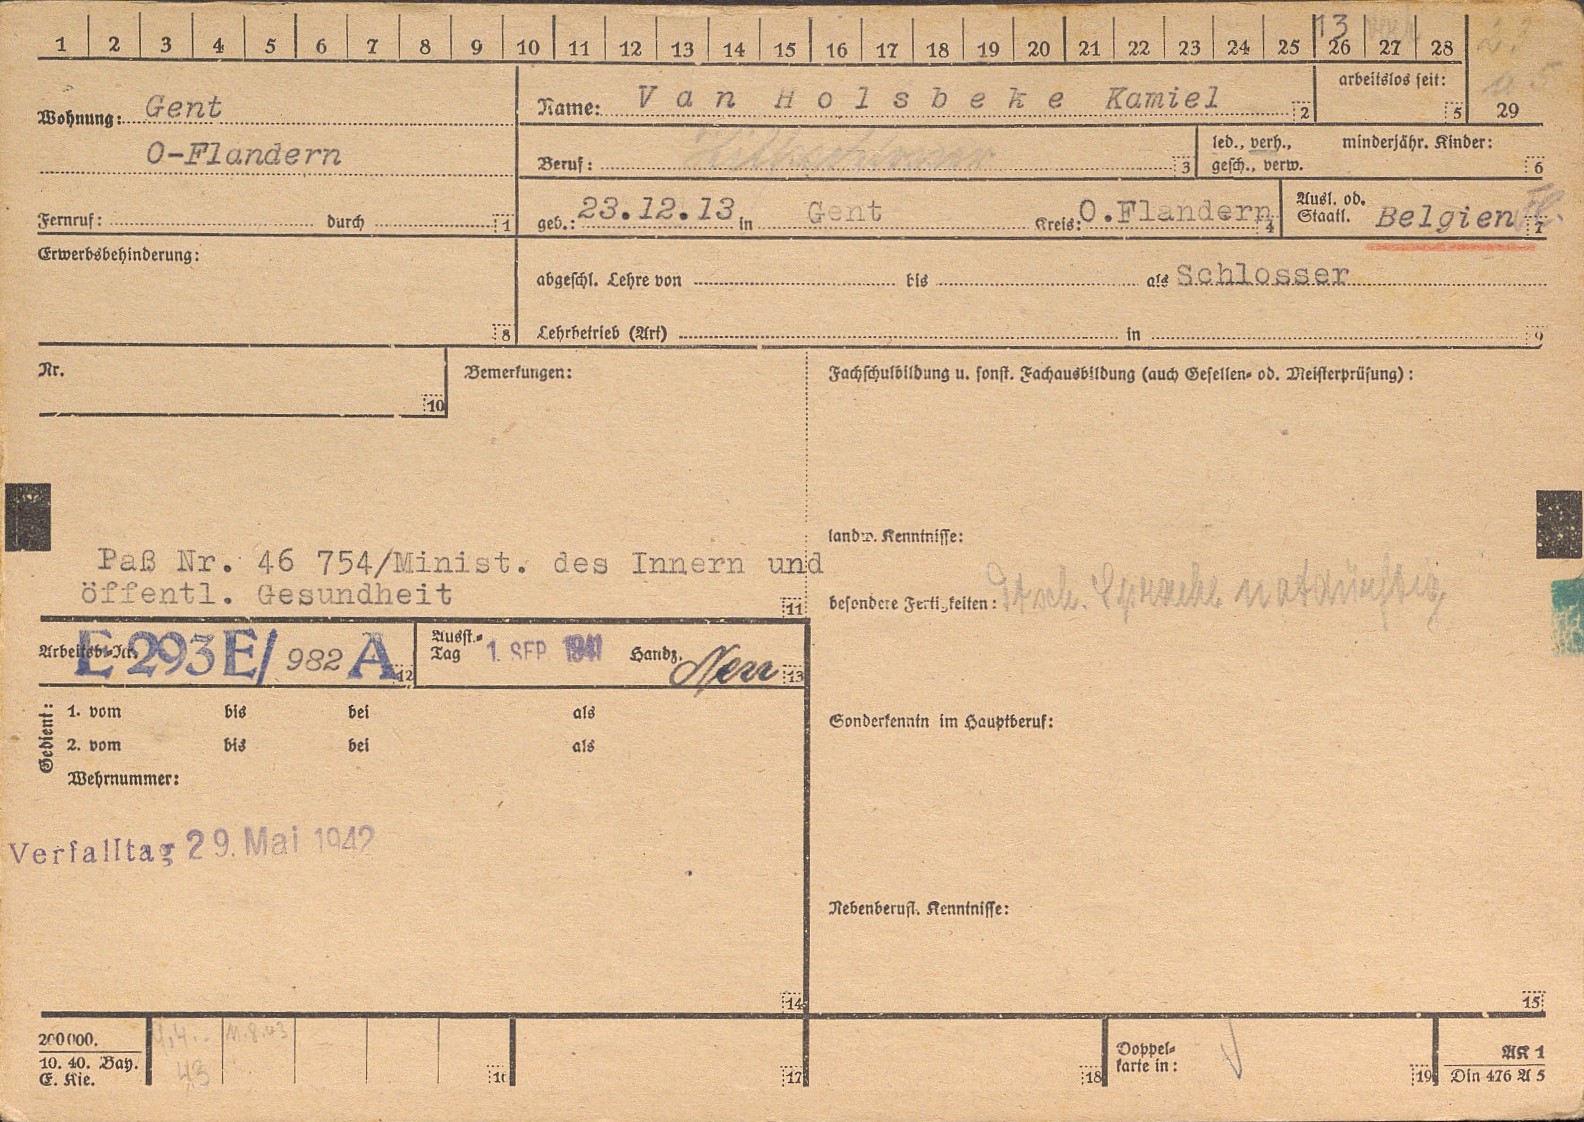 1 2 3 4 5 6 7 8 9 10 11 12 13 14 15 16 17 18 19 20 21 22 23 24 25 26 27 28
13
Wohnung: Gent
O-Flandern
Name: Van Holsbeke Kamiel 2
arbeitslos seit: 5
29
Beruf: 3
led., verh., gesch., verw.
minderjähr. Kinder: 6
Fernruf: durch 1
geb.: 23.12.13 in Gent Kreis: O.Flandern 4
Ausl. od. Staatl. Belgien 7
Erwerbsbehinderung:
8
abgeschl. Lehre von bis als Schlosser
Lehrbetrieb (Art) in 9
Nr.
10
Bemerkungen:
Paß Nr. 46 754/Minist. des Innern und
öffentl. Gesundheit
11
Fachschulbildung u. sonst. Fachausbildung (auch Gesellen- od. Meisterprüfung):
landw. Kenntnisse:
besondere Fertigkeiten: dtsch. Sprache notdürftig
Sonderkenntn im Hauptberuf:
Nebenberufl. Kenntnisse:
15
Arbeitsb.-Nr. E 293 E/ 982 A 12
Ausst.-Tag 1. SEP. 1941 Handz. 13
Gedient:
1. vom bis bei als
2. vom bis bei als
Wehrnummer:
Verfalltag 29. Mai 1942
14
200000.
10. 40. Bay.
E. Kie.
43
11.8.43
16
17
18
Doppel-
karte in:
19
AK 1
Din 476 A 5